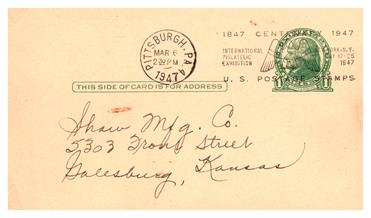 1847 CENTENARY 1947
INTERNATIONAL
PHILATELIC
EXHIBITION
N.Y.
MAY 17-25
1947
U. S. POSTAGE STAMPS
PITTSBURGH, PA. 4
MAR 6
2 PM
1947
THIS SIDE OF CARD IS FOR ADDRESS
Shaw Mfg. Co.
5303 Front Street
Galesburg, Kansas